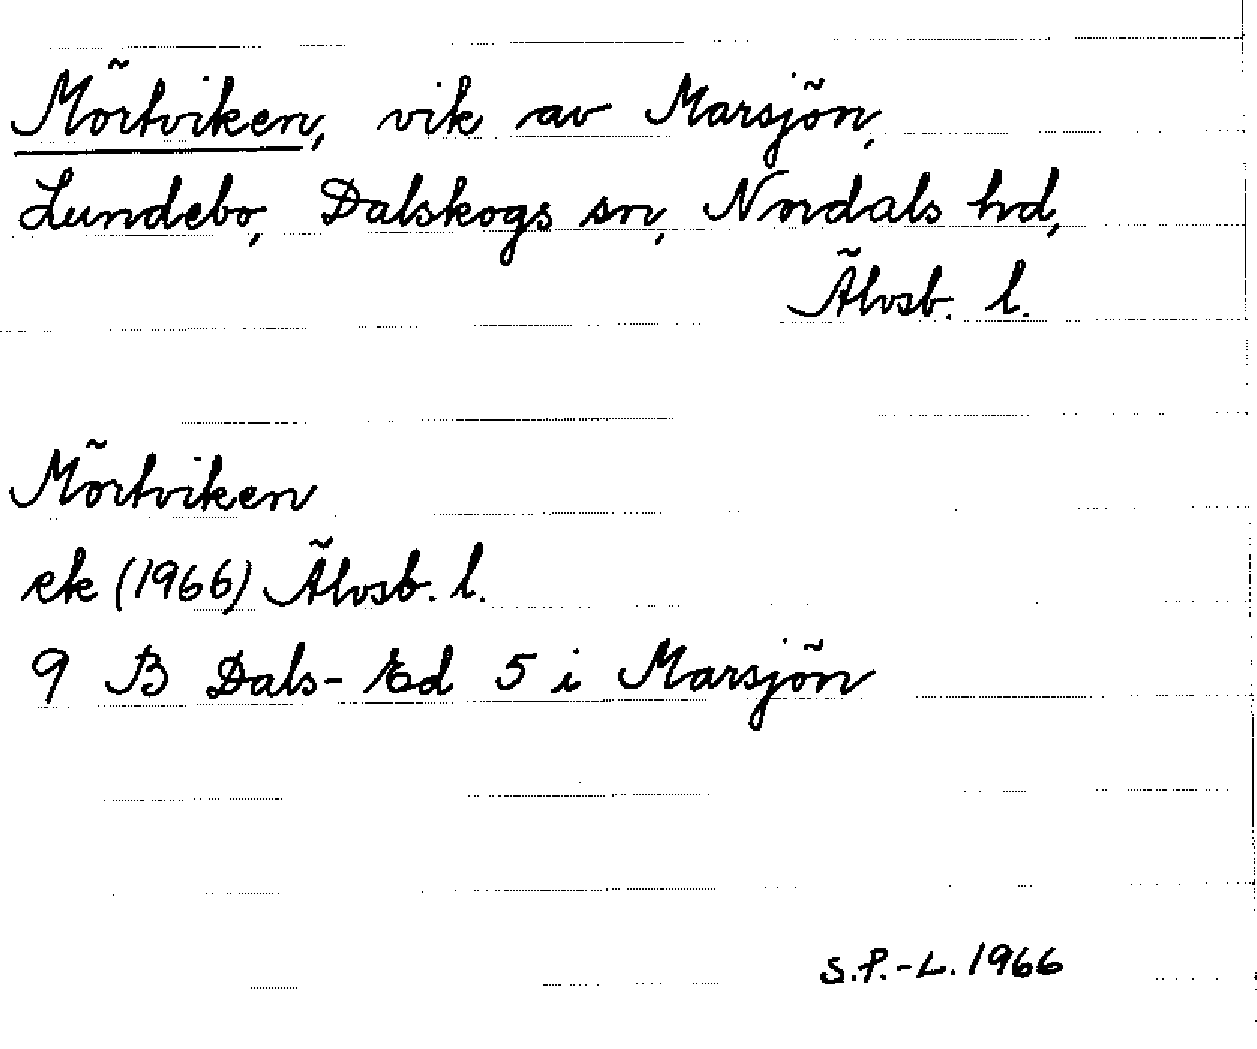 Mörtviken, vik av Marsjön,
Lundebo, Dalskogs sn, Nordals hd,
Älvsb. l.
Mörtviken
ek (1966) Älvsb. l.
9 B Dals-Ed 5 i Marsjön
S.P.-L. 1966